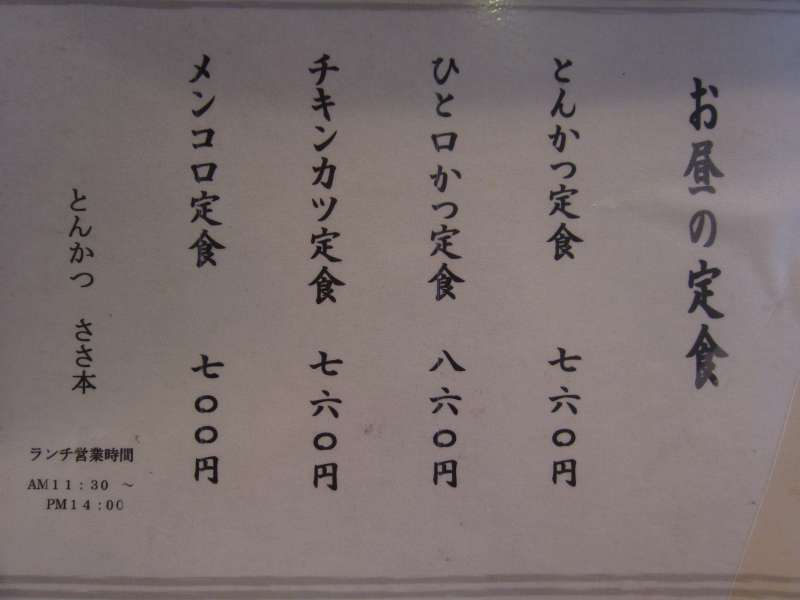 お昼の定食
とんかつ定食 七六〇円
ひと口かつ定食 八六〇円
チキンカツ定食 七六〇円
メンコロ定食 七〇〇円
とんかつ ささ本
ランチ営業時間
AM11:30 ~
PM14:00